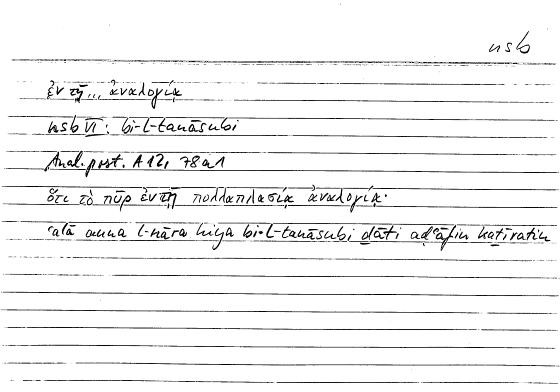 nsb
ἐν τῇ... ἀναλογίᾳ
nsb VI: bi-l-tanāsubi
Anal. post. A 12, 78a1
ὅτι τὸ πῦρ ἐν τῇ πολλαπλασίᾳ ἀναλογίᾳ·
ʿalā anna l-nāra hiya bi-l-tanāsubi ḏāti aḍʿāfin kaṯīratin